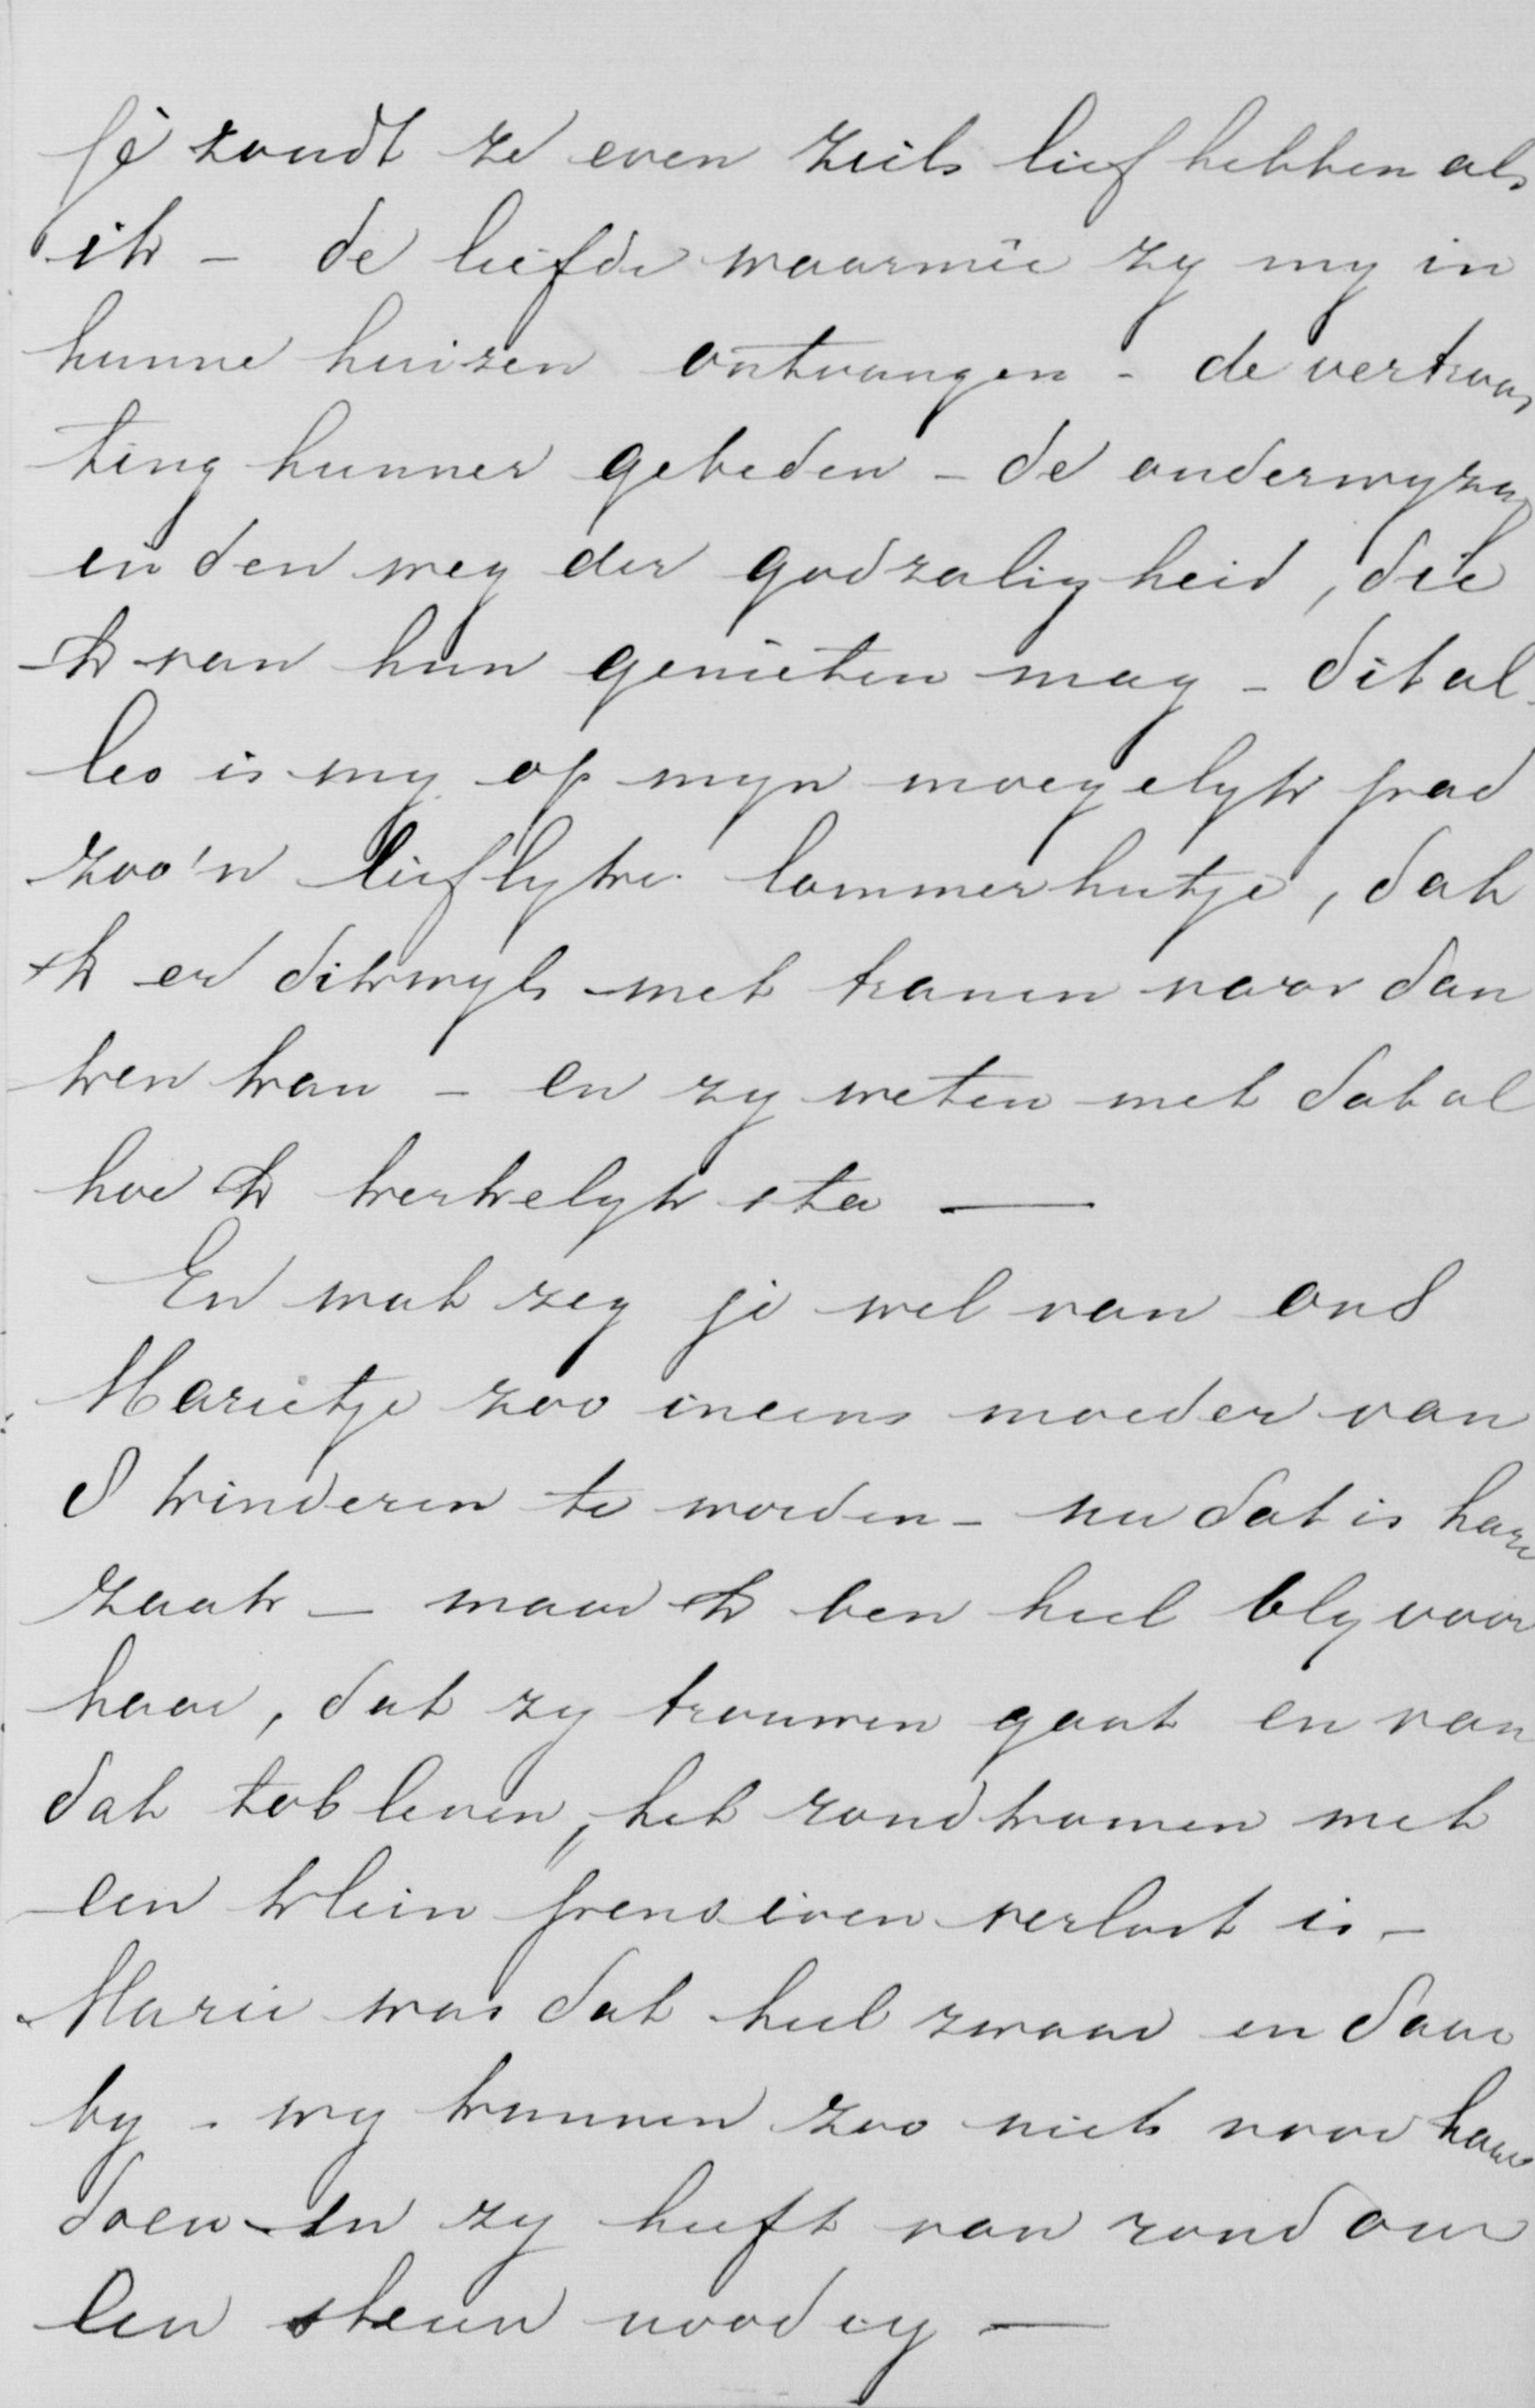 je zoudt ze even zeer lief hebben als
ik – de liefde waarmêe zy my in
hunne huizen ontvangen – de vertroos
ting hunner gebeden – de onderwyzing
in den weg der godzaligheid, die
ik van hun genieten mag – dit al-
les is my op myn moeyelyk pad
zoo'n lieflyke lommerhutje, dat
ik er dikwyls met tranen voor dan
ken kan – en zy weten met dat al
hoe ik kerkelyk sta —
En wat zeg je wel van ons
Marietje zoo ineens moeder van
8 kinderen te worden – nu dat is hare
zaak – maar ik ben heel bly voor
haar, dat zy trouwen gaat en van
dat tobleven, het rondkomen met
een klein pensioen verlost is –
Marie was dat heel zwaar en daar
by – wy kunnen zoo niets voor haar
doen – En zy heeft van rondom
een steun noodig —